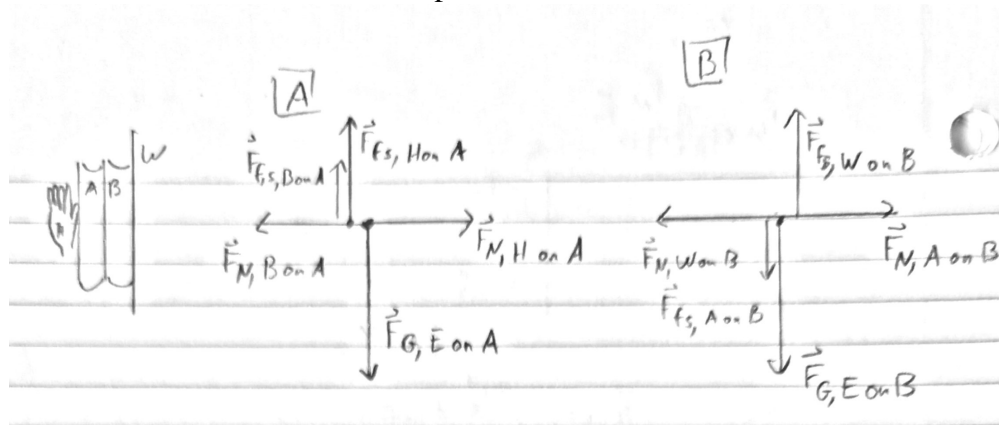 A
B
W
A B
F fs, H on A
F fs, B on A
F N, B on A
F N, H on A
F G, E on A
F fs, W on B
F N, W on B
F N, A on B
F fs, A on B
F G, E on B